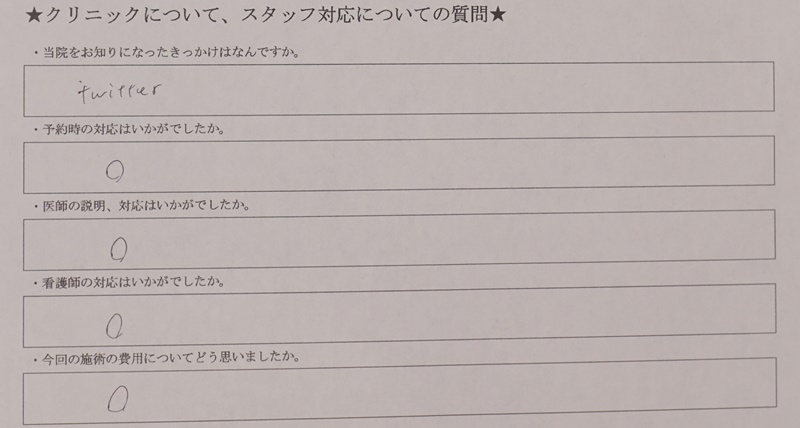 ★クリニックについて、スタッフ対応についての質問★
・当院をお知りになったきっかけはなんですか。
twitter
・予約時の対応はいかがでしたか。
○
・医師の説明、対応はいかがでしたか。
○
・看護師の対応はいかがでしたか。
○
・今回の施術の費用についてどう思いましたか。
○